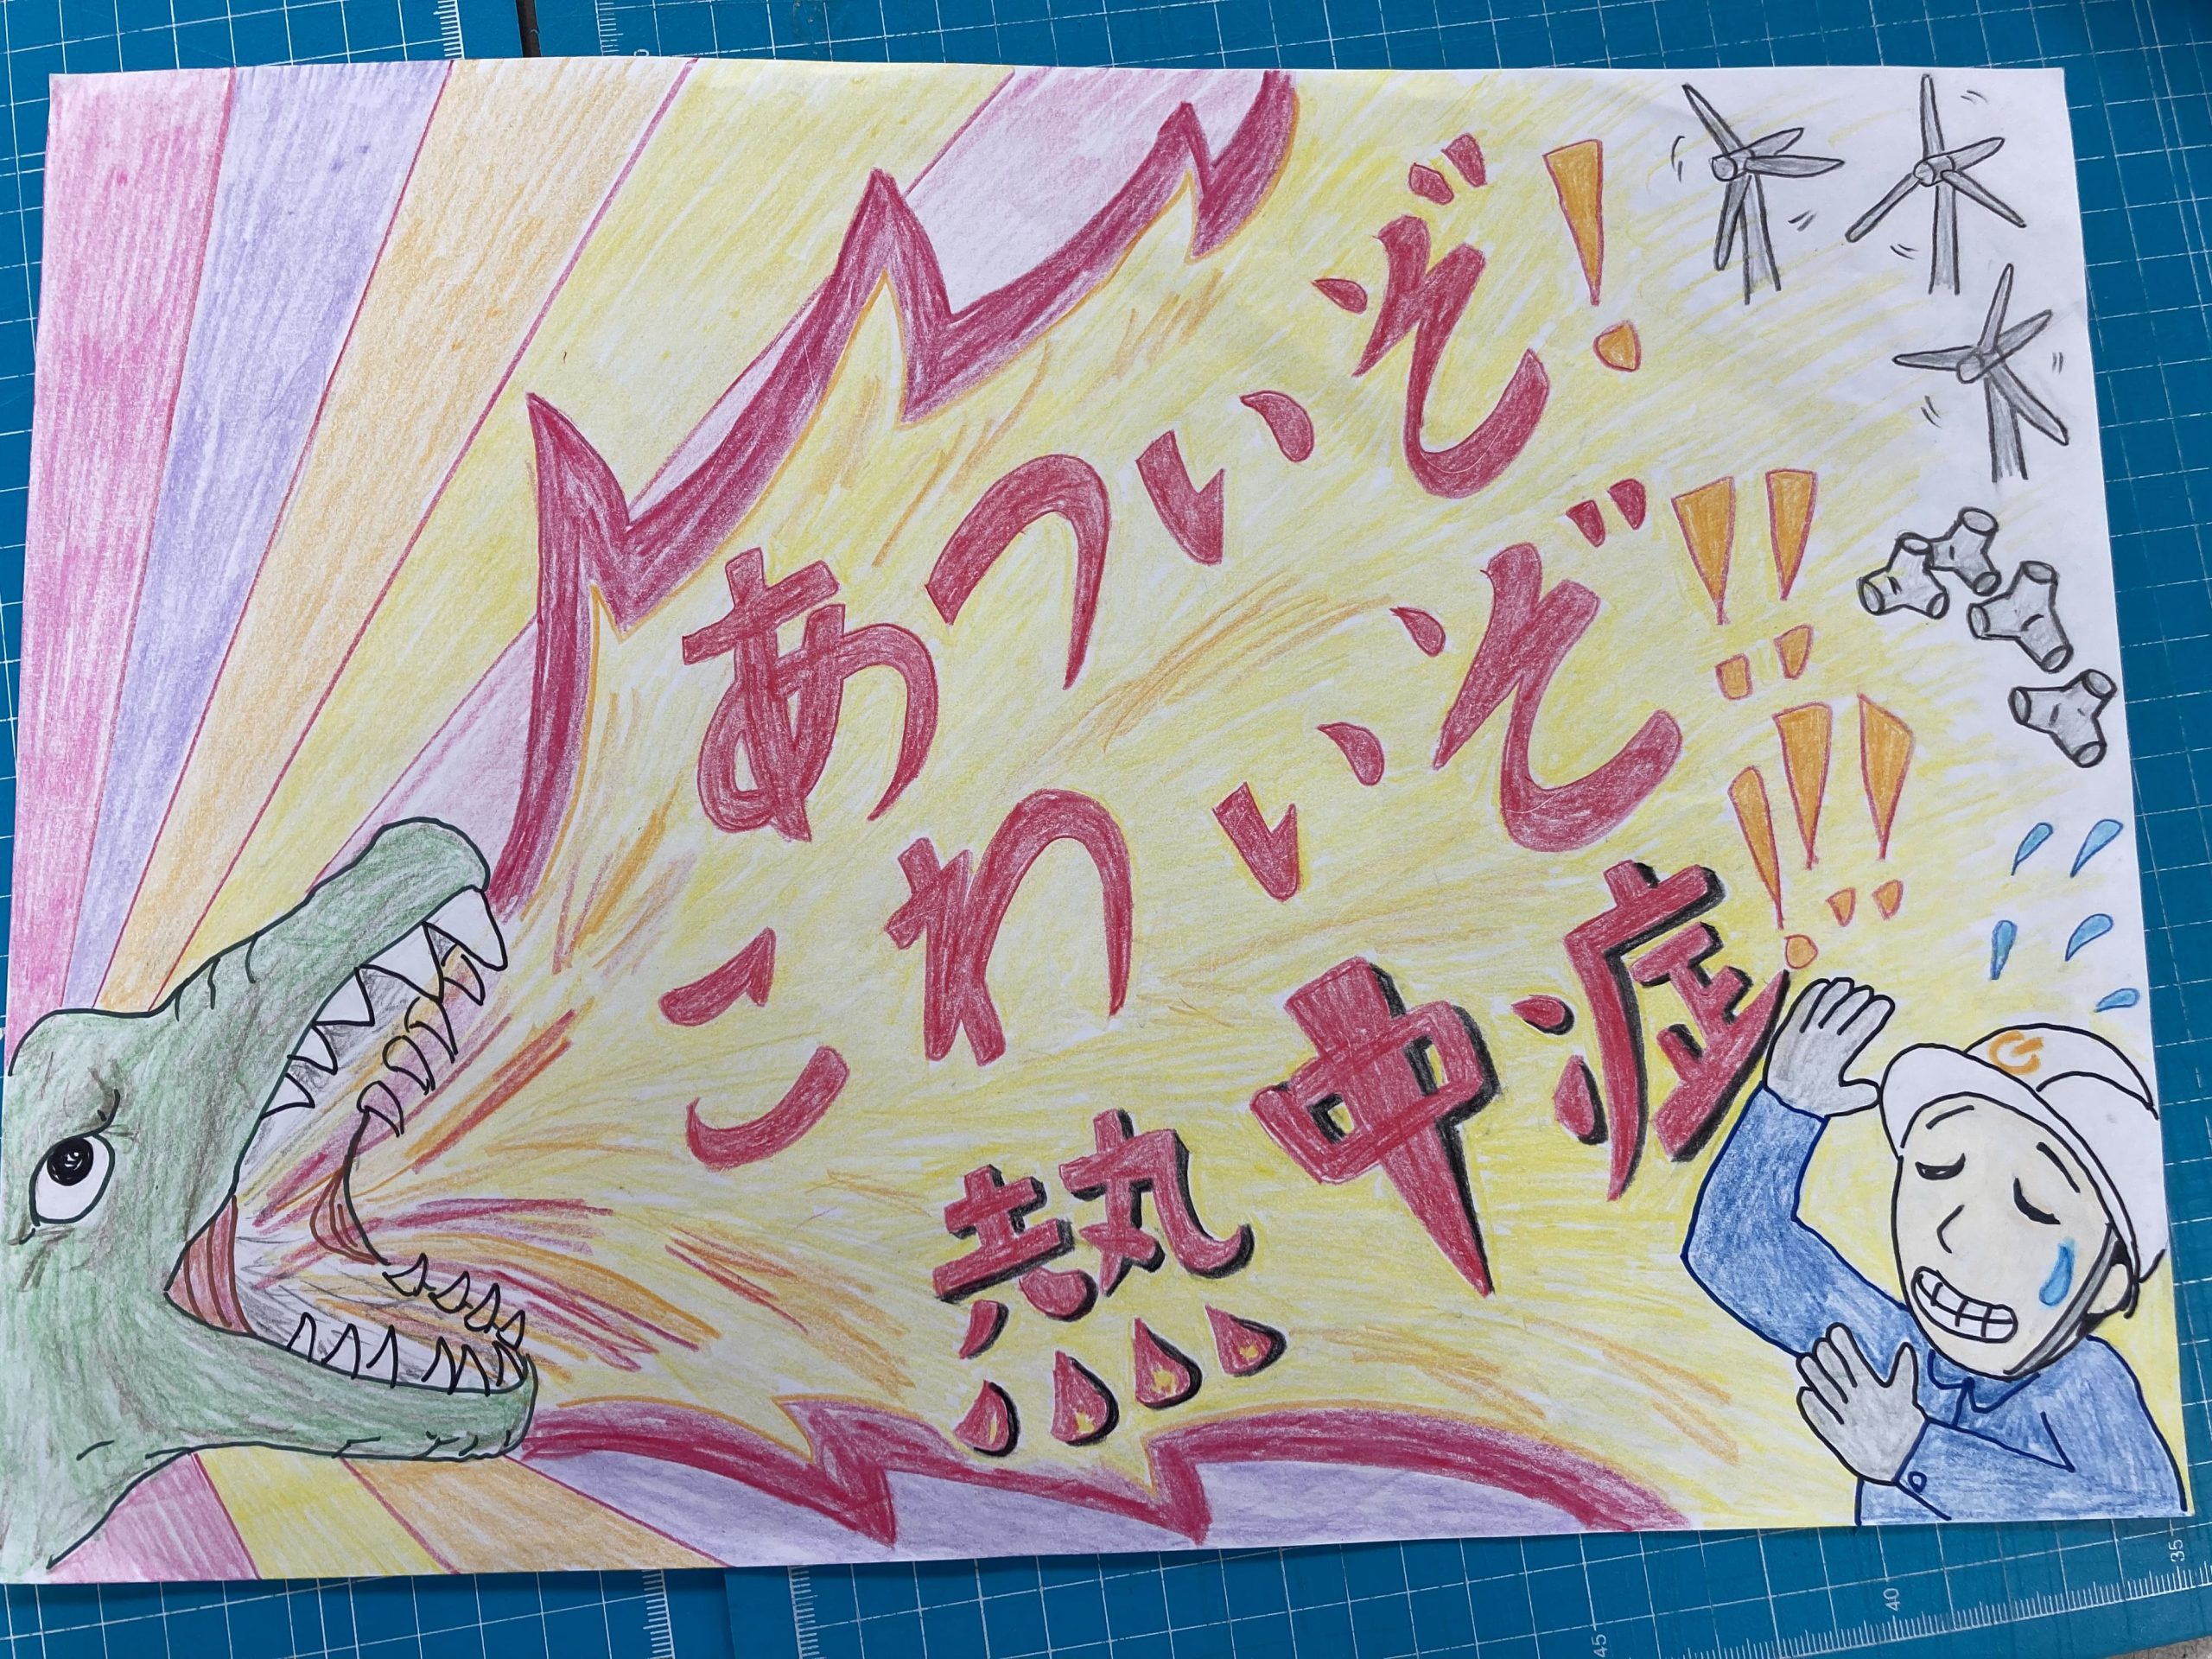 あついぞ!
こわいぞ!!
熱中症!!!
45
40
35